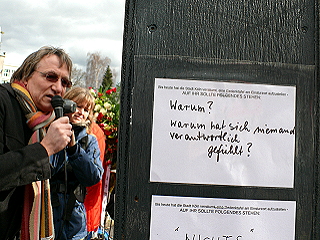 Bis heute hat die Stadt Köln versäumt, eine Gedenktafel am Einsturzort aufzustellen -
AUF IHR SOLLTE FOLGENDES STEHEN:
Warum?
warum hat sich niemand
verantwortlich
gefühlt?
Bis heute hat die Stadt Köln versäumt, eine Gedenktafel am Einsturzort aufzustellen -
AUF IHR SOLLTE FOLGENDES STEHEN:
"NICHTS